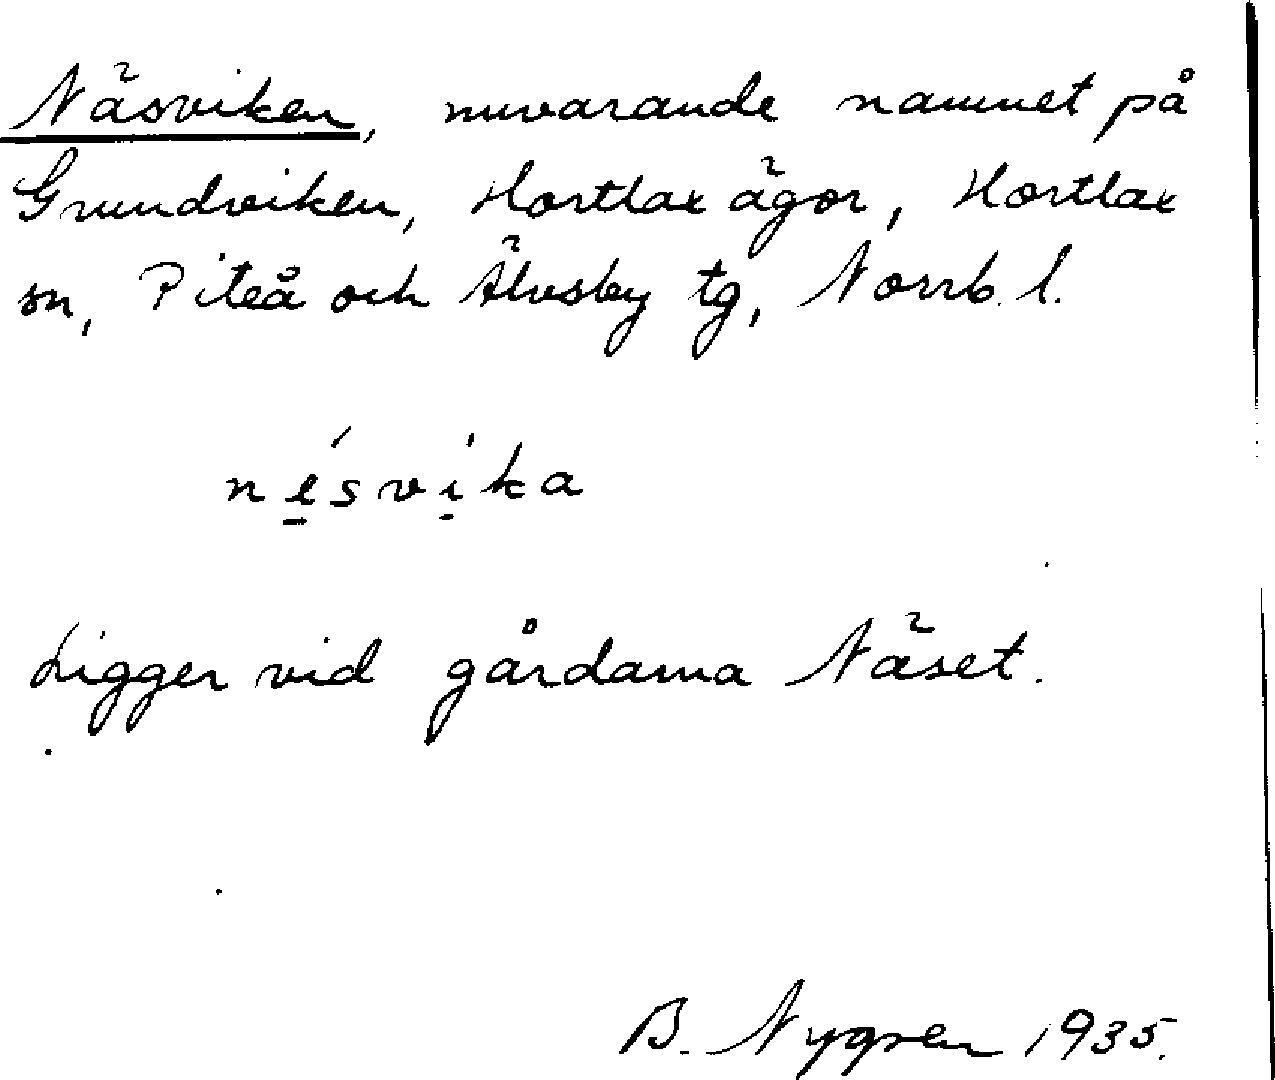 Näsviken, nuvarande namnet på
Grundviken, Hortlax ägor, Hortlax
sn, Piteå och Älvsby tg, Norrb. l.
né̱svi̱ka
Ligger vid gårdarna Näset.
B. Nygren 1935.